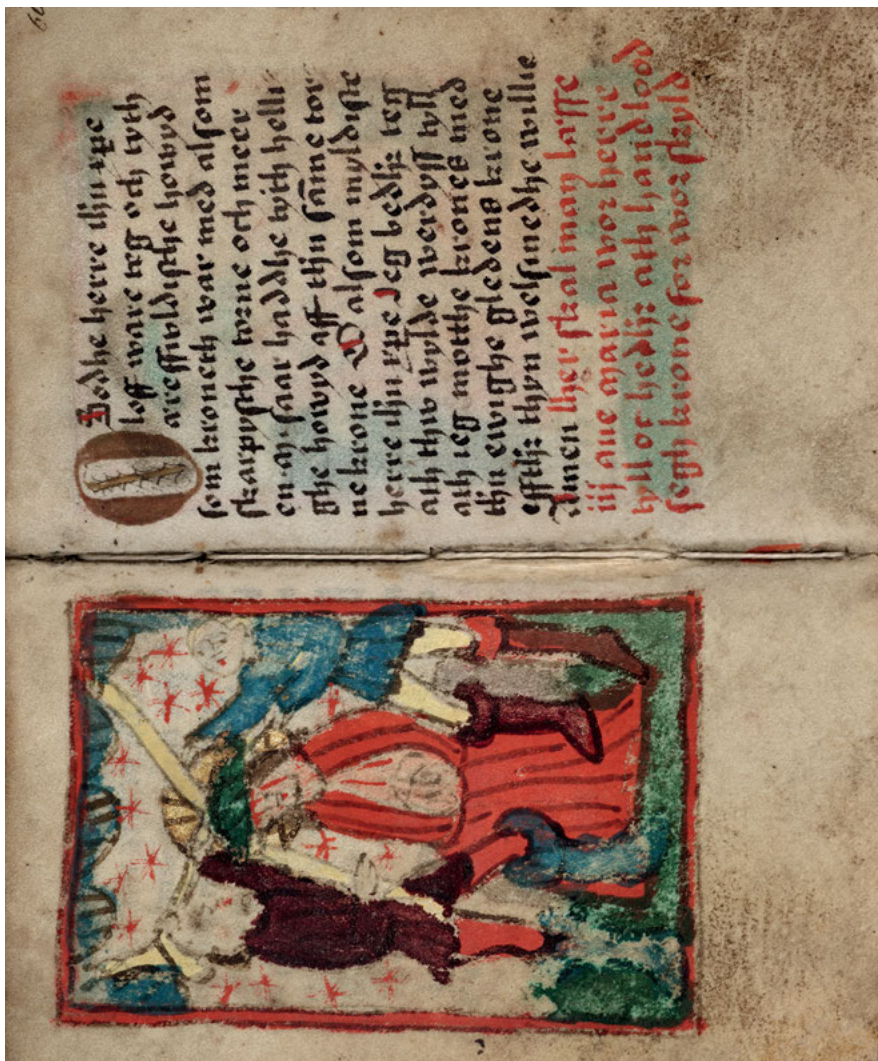 O Bedhe herre ihu xpe
loff ware teg och tyth
areffwldisthe howyd
som kroneth war med alsom
skarpysthe torne och meer
en m saar hadde with helli
ghe howyd aff thin sāme tor
ne krone O alsom myldiste
herre ihu xpe Jeg bedhr teg
ath thw wylde werdyss tyll
ath ieg motthe krones med
thn ewighe gledens krone
effthr thyn welsinedhe willie
Amen Ther skal man lasse
iij aue maria wor herre
tyll oc hedhr ath hand lood
segh krone for wor skyld